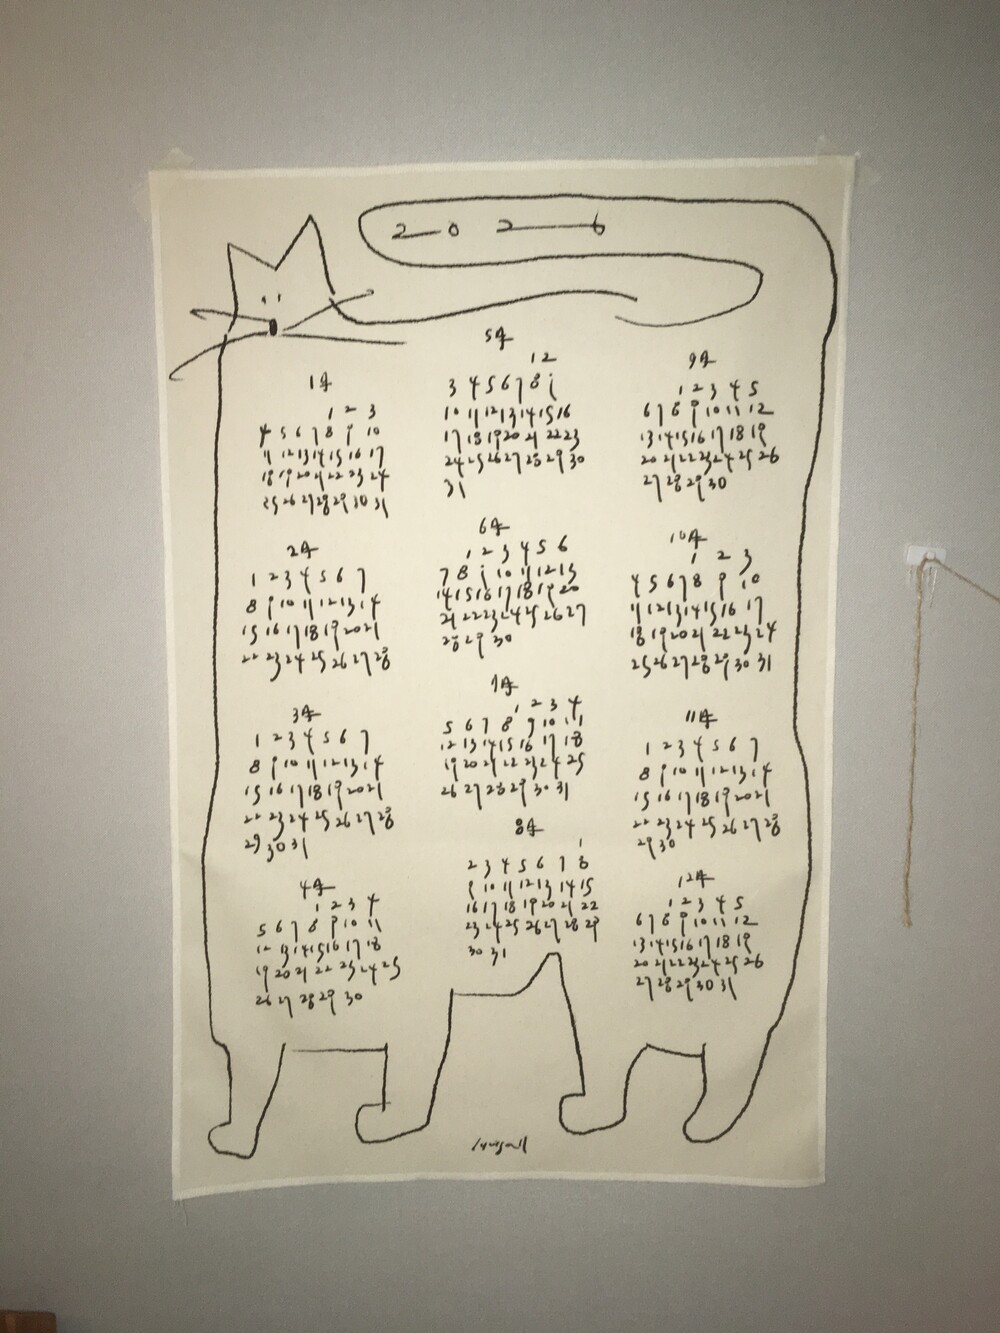 2 0 2 6
1月
1 2 3
4 5 6 7 8 9 10
11 12 13 14 15 16 17
18 19 20 21 22 23 24
25 26 27 28 29 30 31
2月
1 2 3 4 5 6 7
8 9 10 11 12 13 14
15 16 17 18 19 20 21
22 23 24 25 26 27 28
3月
1 2 3 4 5 6 7
8 9 10 11 12 13 14
15 16 17 18 19 20 21
22 23 24 25 26 27 28
29 30 31
4月
1 2 3 4
5 6 7 8 9 10 11
12 13 14 15 16 17 18
19 20 21 22 23 24 25
26 27 28 29 30
5月
1 2
3 4 5 6 7 8 9
10 11 12 13 14 15 16
17 18 19 20 21 22 23
24 25 26 27 28 29 30
31
6月
1 2 3 4 5 6
7 8 9 10 11 12 13
14 15 16 17 18 19 20
21 22 23 24 25 26 27
28 29 30
7月
1 2 3 4
5 6 7 8 9 10 11
12 13 14 15 16 17 18
19 20 21 22 23 24 25
26 27 28 29 30 31
8月
1
2 3 4 5 6 7 8
9 10 11 12 13 14 15
16 17 18 19 20 21 22
23 24 25 26 27 28 29
30 31
9月
1 2 3 4 5
6 7 8 9 10 11 12
13 14 15 16 17 18 19
20 21 22 23 24 25 26
27 28 29 30
10月
1 2 3
4 5 6 7 8 9 10
11 12 13 14 15 16 17
18 19 20 21 22 23 24
25 26 27 28 29 30 31
11月
1 2 3 4 5 6 7
8 9 10 11 12 13 14
15 16 17 18 19 20 21
22 23 24 25 26 27 28
29 30
12月
1 2 3 4 5
6 7 8 9 10 11 12
13 14 15 16 17 18 19
20 21 22 23 24 25 26
27 28 29 30 31